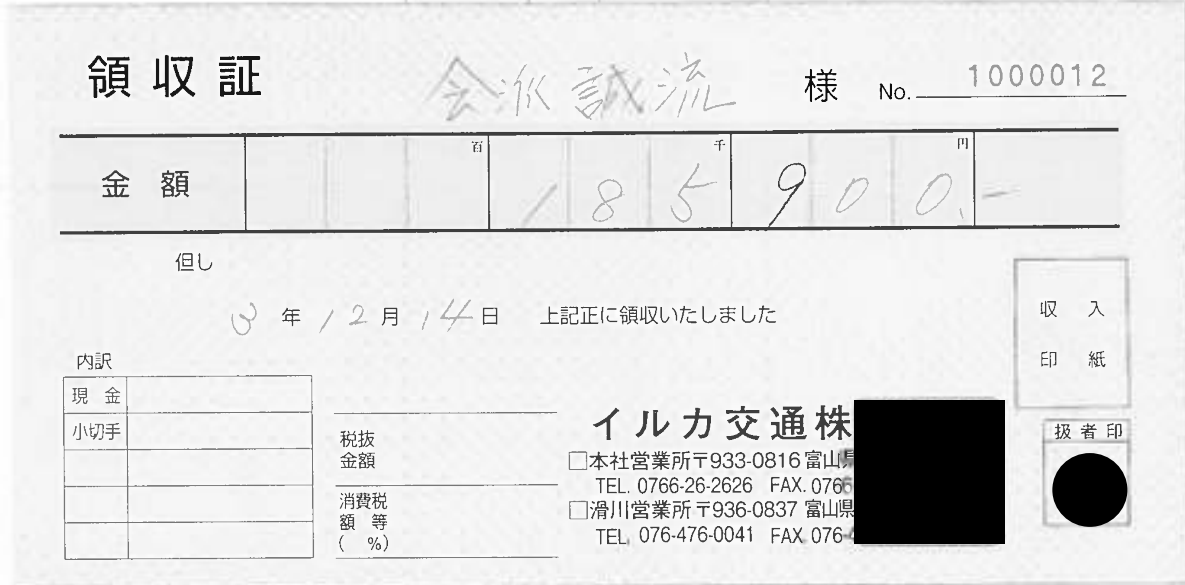 領収証 会派誠流 様 No. 1000012
百 千 円
金額 185900.-
但し
3年12月14日 上記正に領収いたしました
収入
印紙
内訳
現金
小切手
税抜
金額
消費税
額等
( %)
イルカ交通株
□本社営業所〒933-0816富山県
TEL. 0766-26-2626 FAX. 0766
□滑川営業所〒936-0837富山県
TEL. 076-476-0041 FAX. 076-
扱者印